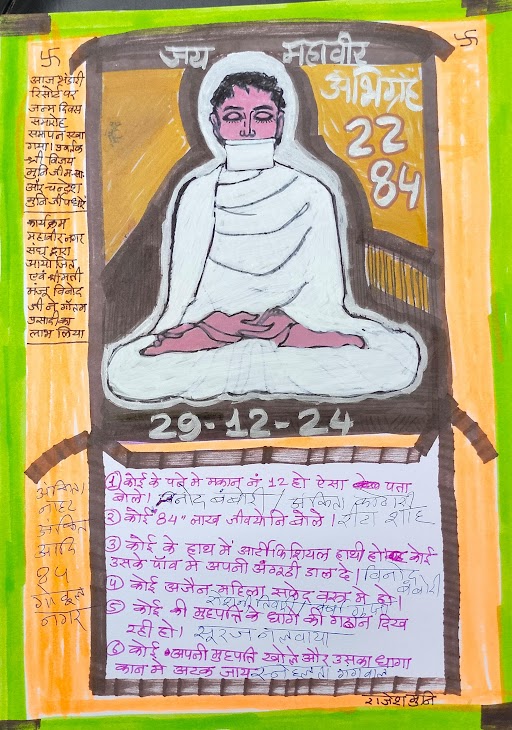 जय महावीर
अभिग्रह
22
84
रिसोर्ट पर
जन्म दिवस
समारोह
समापन रखा
गया।
श्री विजय
मुनि जी म.सा.
और चन्द्रेश
मुनि जी पधारे
कार्यक्रम
महावीर नगर
संघ द्वारा
आयोजित
एवं श्रीमती
मंजू विनोद
जी ने गौतम
प्रसादी का
लाभ लिया
29-12-24
① कोई के पते में मकान नं 12 हो ऐसा पता
बोले। विनोद बंबोरी / अंकिता कोठारी
② कोई "84" लाख जीवयोनि बोले। रीटा शाह
③ कोई के हाथ में आर्टीफिशियल हाथी हो कोई
उसके पाँव में अपनी अंगूठी डाल दे। विनोद
बंबोरी
④ कोई अजैन महिला सफेद वस्त्र में हो।
⑤ कोई की मुहपति के धागे की गठान दिख
रही हो। सूरज नलवाया
⑥ कोई अपनी मुहपति खोले और उसका धागा
कान में अटक जाय स्नेहलता
अंकिता
नाहर
अंकित
आदि
84
गोकुल
नगर
राजेश मुनि